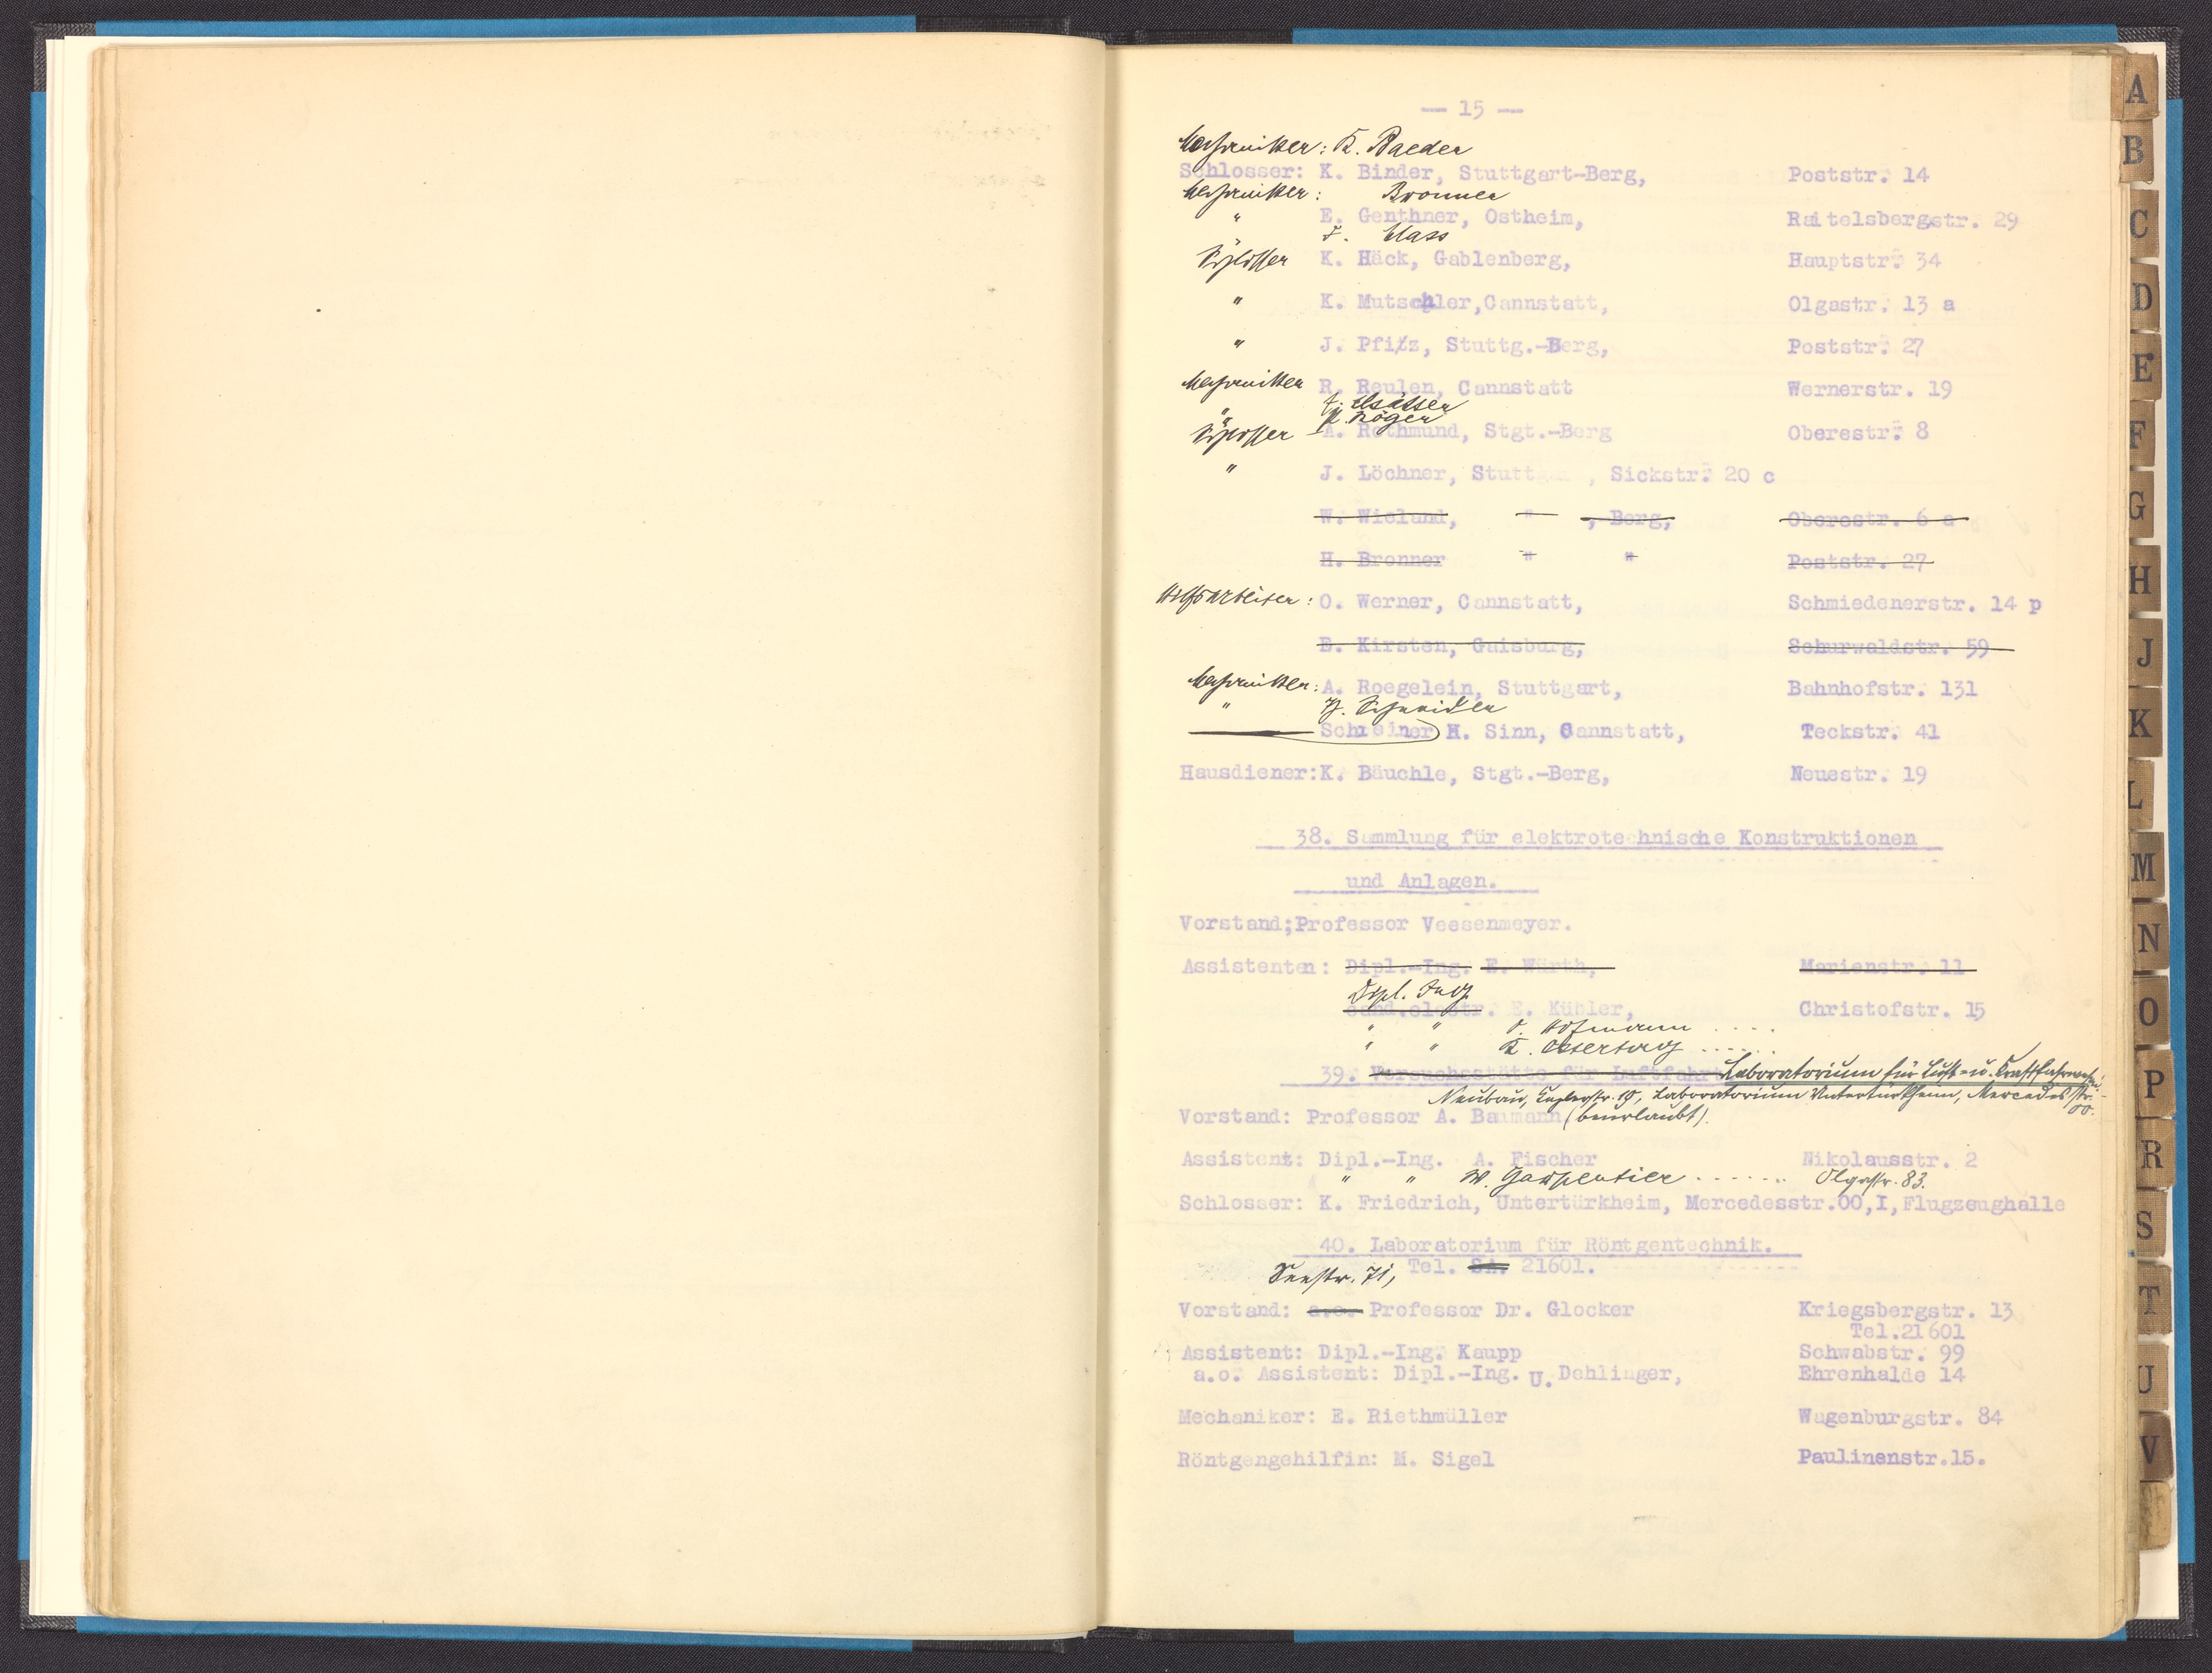 — 15 —
Mechaniker: K. Baeder
Schlosser: K. Binder, Stuttgart-Berg, Poststr. 14
Mechaniker: Bronner
" E. Genthner, Ostheim, Raitelsbergstr. 29
F. Class
Schlosser K. Häck, Gablenberg, Hauptstr. 34
" K. Mutschler, Cannstatt, Olgastr. 13 a
" J. Pfitz, Stuttg.-Berg, Poststr. 27
Mechaniker R. Reulen, Cannstatt Wernerstr. 19
" Elsässer
" Röger
Schlosser A. Rothmund, Stgt.-Berg Oberestr. 8
" J. Löchner, Stuttgart, Sickstr. 20 c
W. Wieland, " , Berg, Oberestr. 6 a
H. Bronner " " Poststr. 27
Hilfsarbeiter: O. Werner, Cannstatt, Schmiedenerstr. 14 p
E. Kirsten, Gaisburg, Schurwaldstr. 59
Mechaniker: A. Roegelein, Stuttgart, Bahnhofstr. 131
" H. Schneider
Schreiner H. Sinn, Cannstatt, Teckstr. 41
Hausdiener: K. Bäuchle, Stgt.-Berg, Neuestr. 19
38. Sammlung für elektrotechnische Konstruktionen
und Anlagen.
Vorstand; Professor Veesenmeyer.
Assistenten: Dipl.-Ing. E. Wörth, Marienstr. 11
Dipl. Ing
cand.electr. E. Kübler, Christofstr. 15
" " O. Hofmann ....
" " K. Ostertag ......
39. Versuchsstätte für Luftfahrt Laboratorium für Luft- u. Kraftfahrwesen.
Neubau, Keplerstr. 10, Laboratorium Untertürkheim, Mercedesstr. 00.
Vorstand: Professor A. Baumann (beurlaubt).
Assistent: Dipl.-Ing. A. Fischer Nikolausstr. 2
" " W. Carpentier ...... Olgastr. 83.
Schlosser: K. Friedrich, Untertürkheim, Mercedesstr.00,I, Flugzeughalle
40. Laboratorium für Röntgentechnik.
Seestr. 71, Tel. SA. 21601.
Vorstand: a.o. Professor Dr. Glocker Kriegsbergstr. 13
Tel.21601
Assistent: Dipl.-Ing. Kaupp Schwabstr. 99
a.o. Assistent: Dipl.-Ing. U. Dehlinger, Ehrenhalde 14
Mechaniker: E. Riethmüller Wagenburgstr. 84
Röntgengehilfin: M. Sigel Paulinenstr.15.
A
B
C
D
E
F
G
H
J
K
L
M
N
O
P
R
S
T
U
V